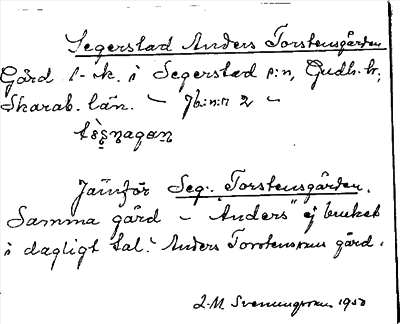 Segerstad Anders Torstensgården
Gård 1-sk. i Segerstad s:n, Gudh. hr,
Skarab. län. - Jb:n:r 2 -
Jämför Seg., Torstensgården.
Samma gård - "Anders" ej brukat
i dagligt tal. Anders Torstensson gård.
L.M. Svenungsson 1950